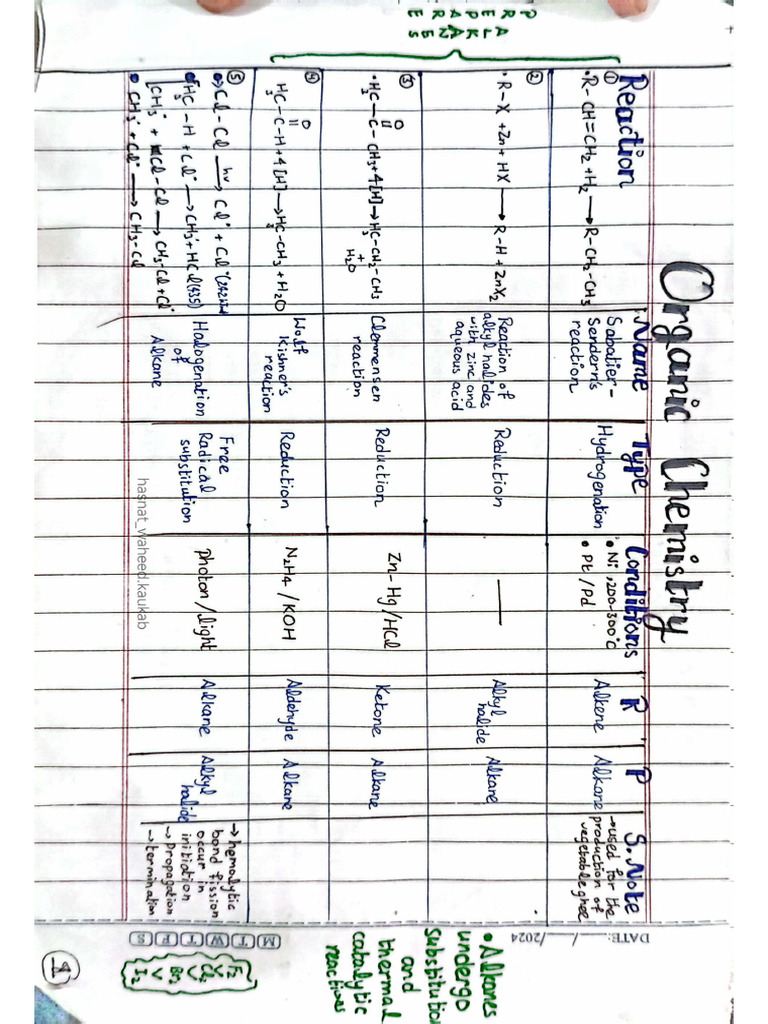 Organic Chemistry
DATE: ___/___/2024
M T W T F S
Reaction Name Type Conditions R P S.Note
① • R-CH=CH2 + H2 → R-CH2-CH3
Sabatier-
Sendern's
reaction
Hydrogenation
• Ni, 200-300°C
• Pt/Pd
Alkene
Alkane
→ used for the
production of
vegetable ghee
② • R-X + Zn + HX → R-H + ZnX2
Reaction of
alkyl halides
with zinc and
aqueous acid
Reduction
—
Alkyl
halide
Alkane
③ • H3C-C-CH3 + 4[H] → H3C-CH2-CH3
O
+
H2O
Clemmensen
reaction
Reduction
Zn-Hg/HCl
Ketone
Alkane
④ H3C-C-H + 4[H] → H3C-CH3 + H2O
O
Wolf
Kishner's
reaction
Reduction
N2H4/KOH
Aldehyde
Alkane
⑤ • Cl-Cl hv→ Cl• + Cl•
• H3C-H + Cl• → CH3• + HCl(435)
CH3• + Cl-Cl → CH3-Cl + Cl•
• CH3• + Cl• → CH3-Cl
Halogenation
of
Alkane
Free
Radical
substitution
Photon/light
Alkane
Alkyl
halide
→ hemolytic
bond fission
occur in
initiation
→ propagation
→ termination
PREPARES
ALKANES
• Alkanes
undergo
substitution
and
thermal
catalytic
reactions
F2
V
Cl2
V
Br2
V
I2
1
hasnat_waheed.kaukab